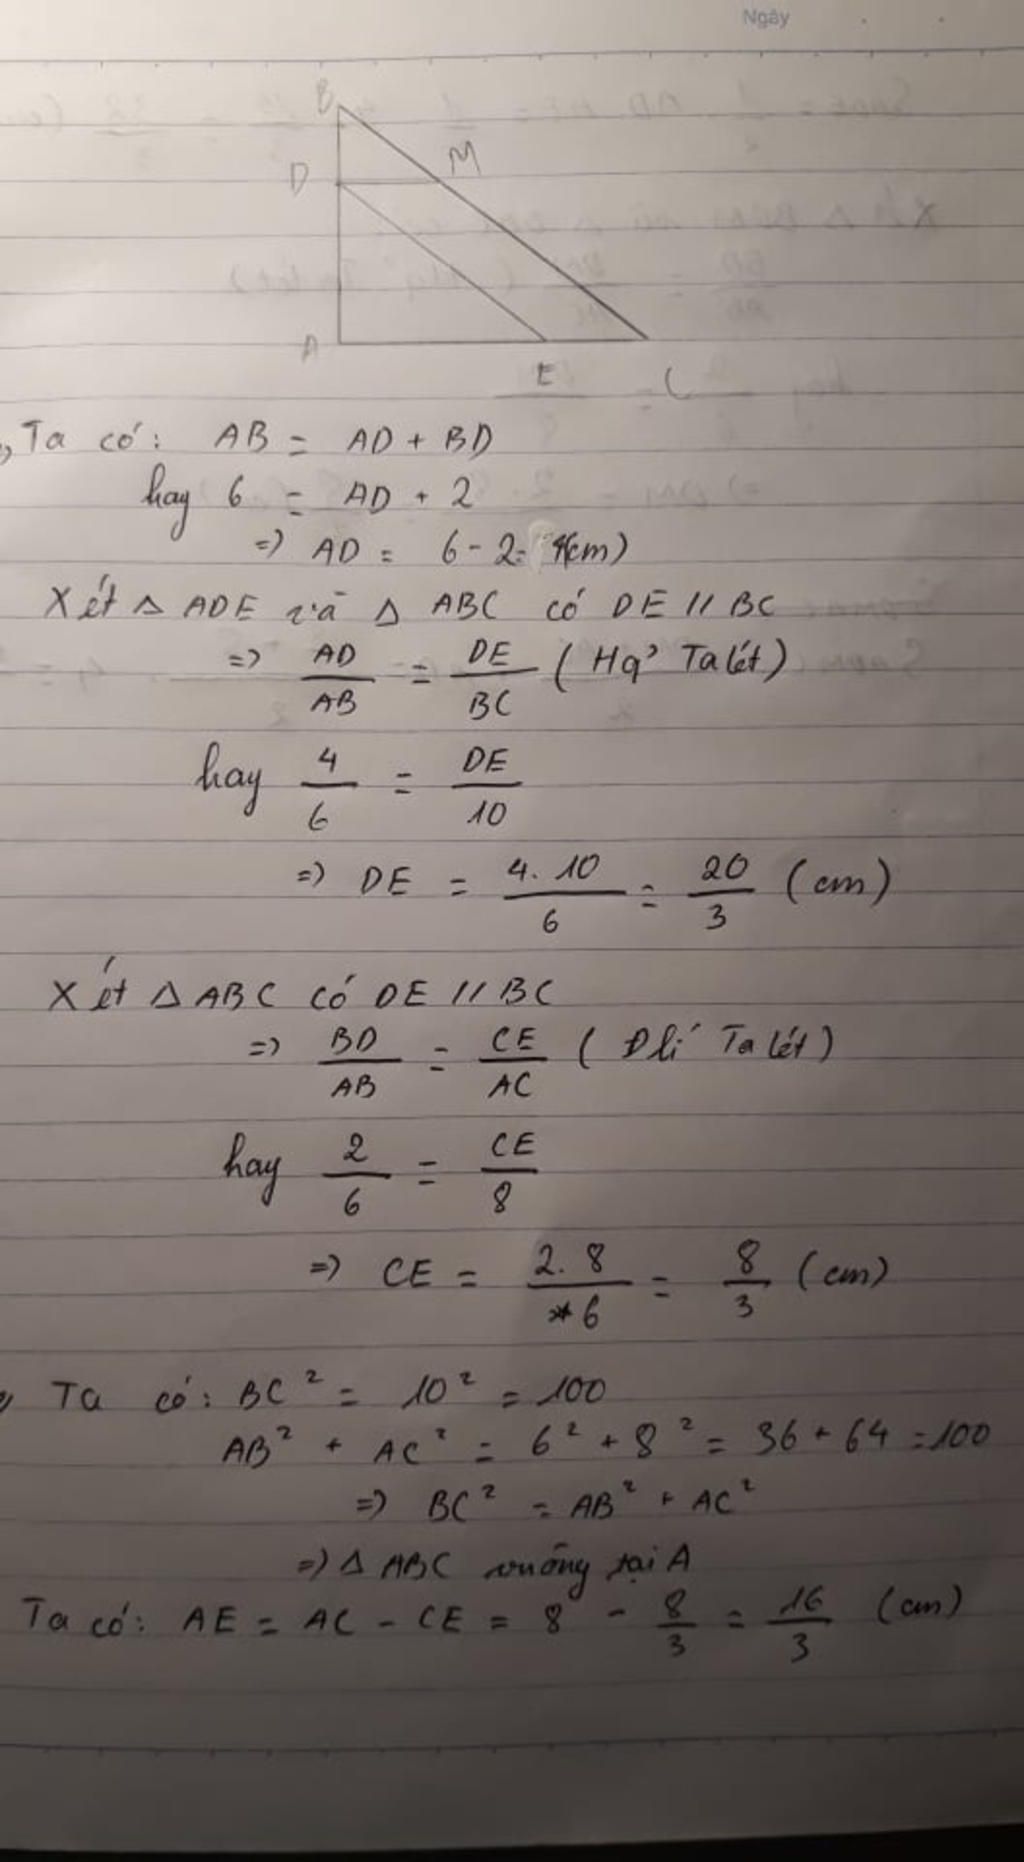 Ngày
B
D
M
A
E
C
, Ta có: AB = AD + BD
hay 6 = AD + 2
=> AD = 6 - 2 = 4(cm)
Xét Δ ADE và Δ ABC có DE // BC
=> AD/AB = DE/BC (Hq' Ta lét)
hay 4/6 = DE/10
=> DE = 4.10/6 = 20/3 (cm)
Xét Δ ABC có DE // BC
=> BD/AB = CE/AC (Đlí Ta lét)
hay 2/6 = CE/8
=> CE = 2.8/6 = 8/3 (cm)
, Ta có: BC² = 10² = 100
AB² + AC² = 6² + 8² = 36 + 64 = 100
=> BC² = AB² + AC²
=> Δ ABC vuông tại A
Ta có: AE = AC - CE = 8 - 8/3 = 16/3 (cm)